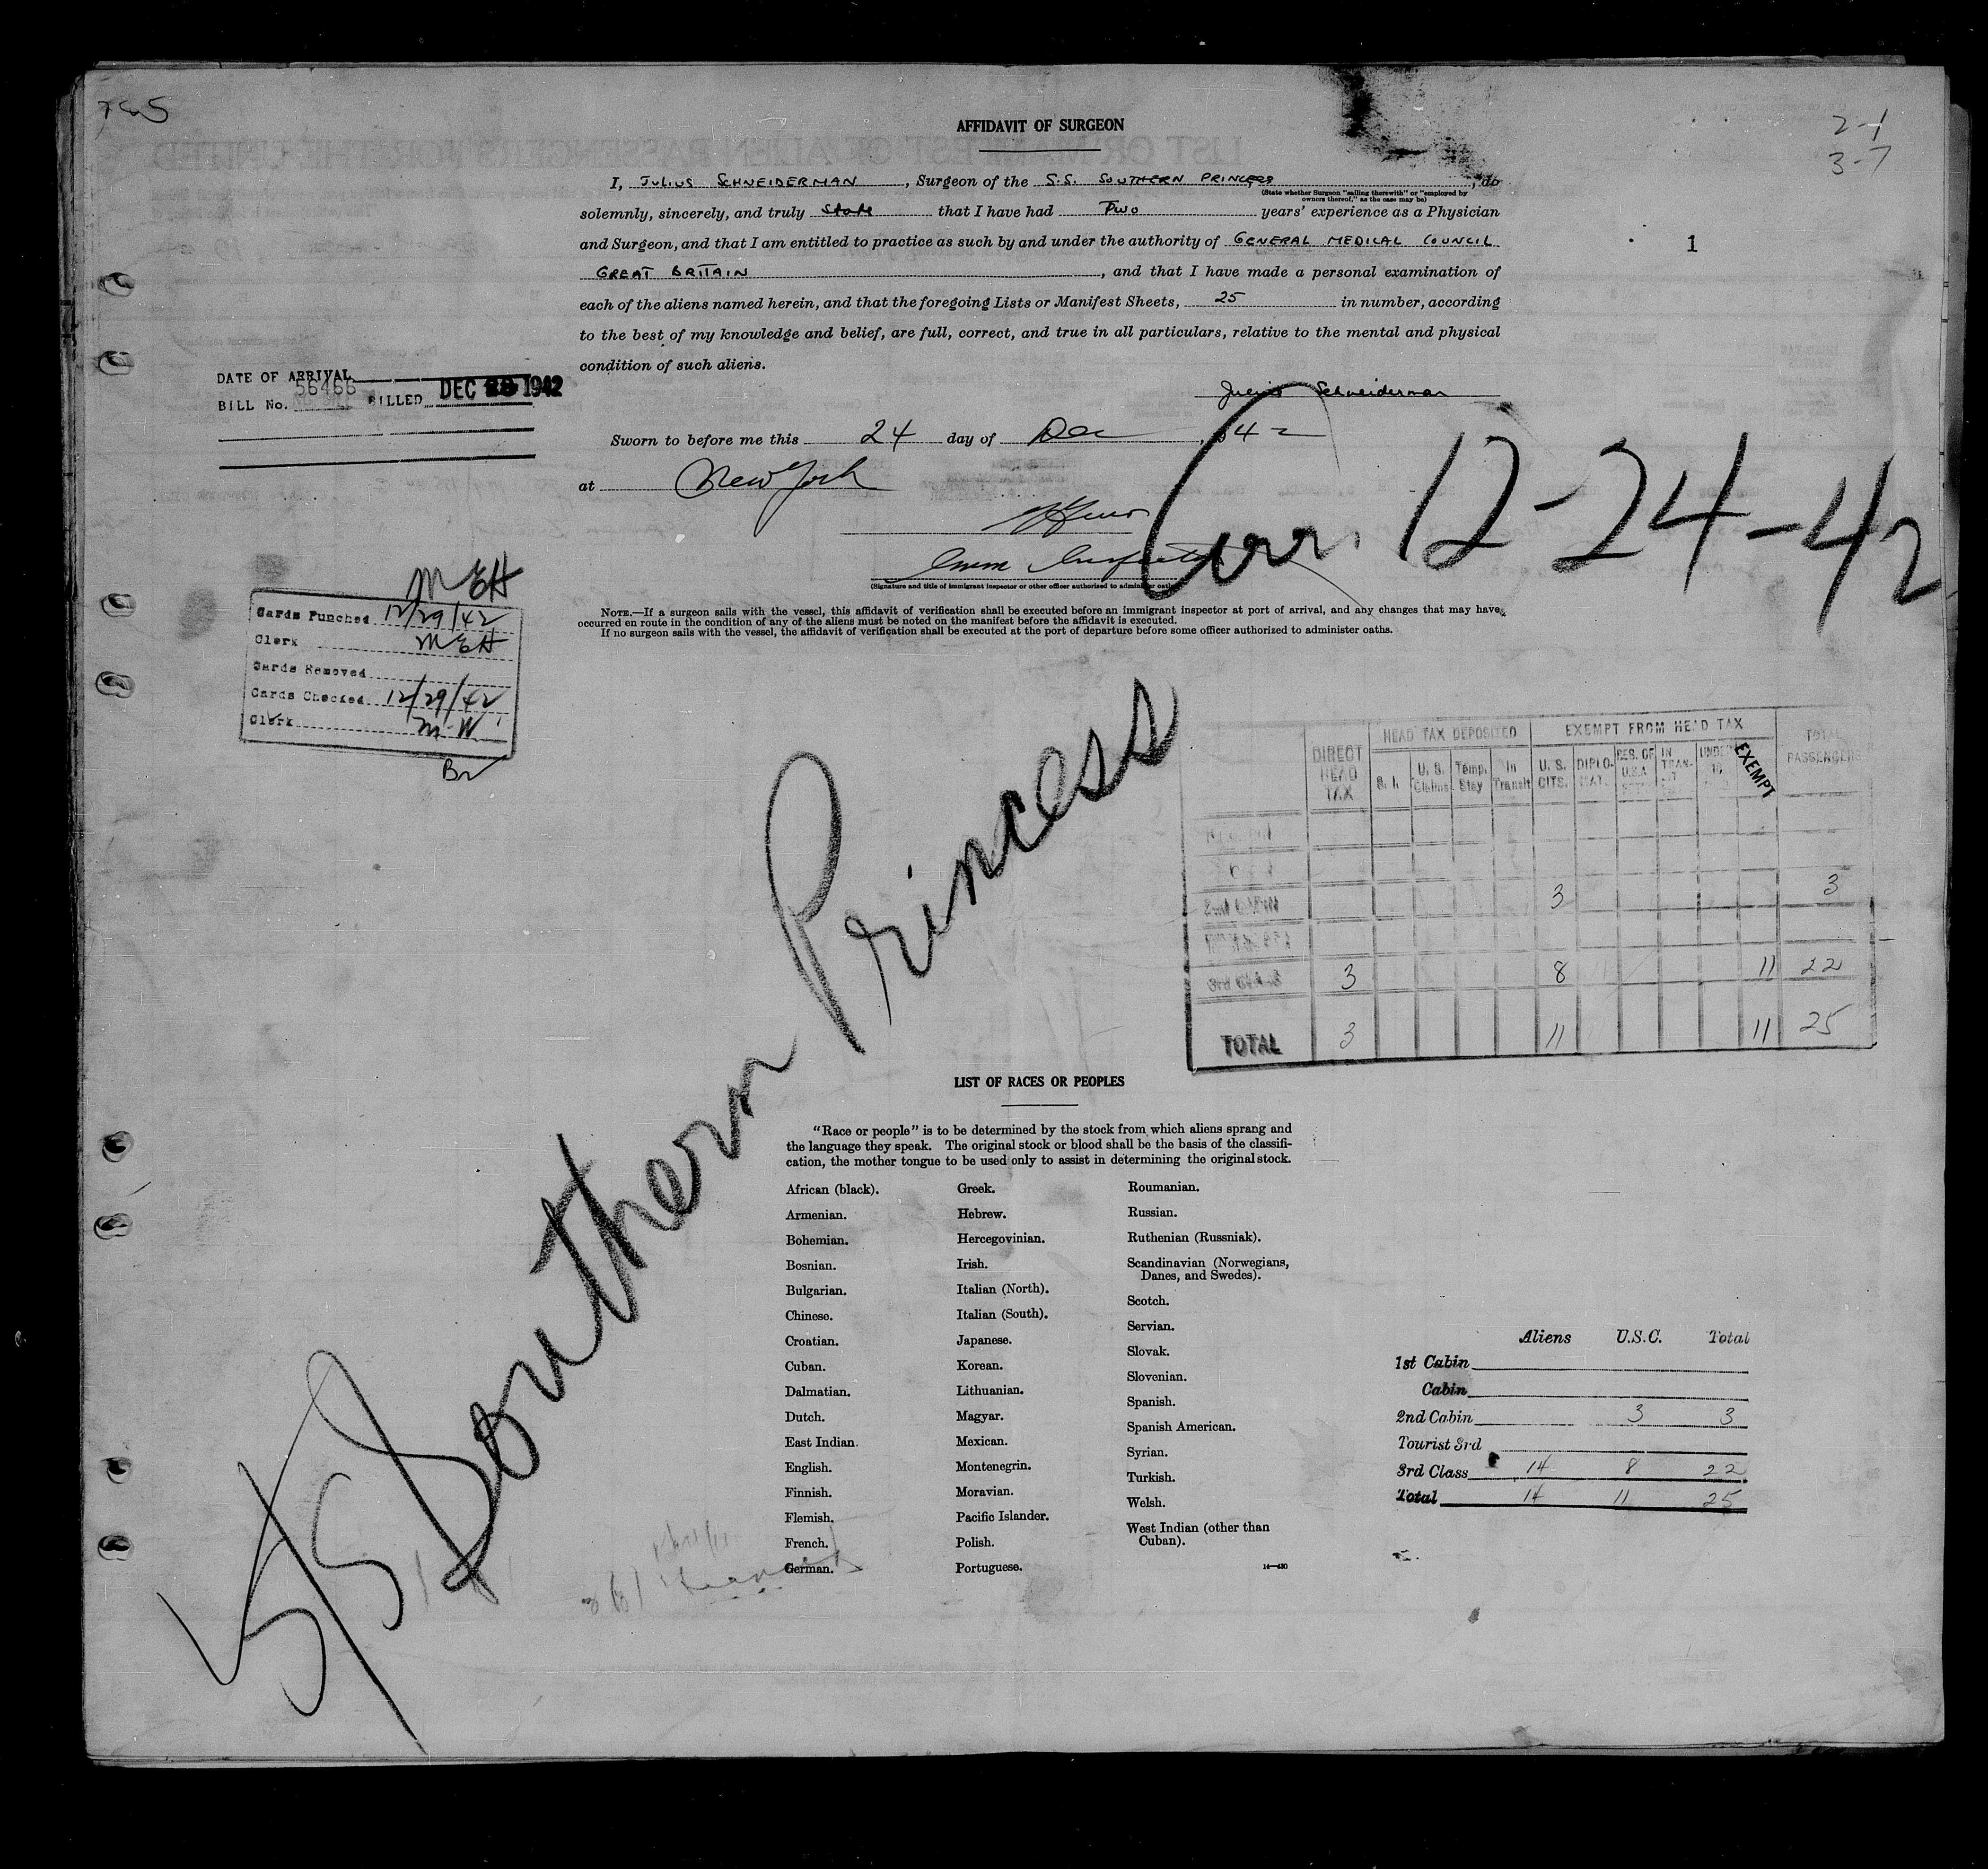 785
2-1
3-7
1
AFFIDAVIT OF SURGEON
I, JULIUS SCHNEIDERMAN, Surgeon of the S.S. SOUTHERN PRINCESS, do
(State whether Surgeon "sailing therewith" or "employed by
owners thereof," as the case may be)
solemnly, sincerely, and truly state that I have had Two years' experience as a Physician
and Surgeon, and that I am entitled to practice as such by and under the authority of GENERAL MEDICAL COUNCIL
GREAT BRITAIN, and that I have made a personal examination of
each of the aliens named herein, and that the foregoing Lists or Manifest Sheets, 25 in number, according
to the best of my knowledge and belief, are full, correct, and true in all particulars, relative to the mental and physical
condition of such aliens.
Julius Schneiderman
DATE OF ARRIVAL
BILL No. 56466 BILLED DEC 28 1942
Sworn to before me this 24 day of Dec, 42
at New York
Arr. 12-24-42
(Signature and title of immigrant inspector or other officer authorized to administer oaths)
NOTE.—If a surgeon sails with the vessel, this affidavit of verification shall be executed before an immigrant inspector at port of arrival, and any changes that may have
occurred en route in the condition of any of the aliens must be noted on the manifest before the affidavit is executed.
If no surgeon sails with the vessel, the affidavit of verification shall be executed at the port of departure before some officer authorized to administer oaths.
MEH
Cards Punched 12/29/42
Clerk MEH
Cards Removed
Cards Checked 12/29/42
Clerk M.W.
SS Southern Princess
HEAD TAX DEPOSITED EXEMPT FROM HEAD TAX
DIRECT HEAD TAX S. I. U. S. Claims Temp. Stay In Transit U. S. CITS. DIPLO-MAT. RES. OF U.S.A. IN TRAN-SIT UNDER 16 EXEMPT TOTAL PASSENGERS
2nd CABIN 3 3
3rd CLASS 3 8 11 22
TOTAL 3 11 11 25
LIST OF RACES OR PEOPLES
"Race or people" is to be determined by the stock from which aliens sprang and
the language they speak. The original stock or blood shall be the basis of the classifi-
cation, the mother tongue to be used only to assist in determining the original stock.
African (black).
Armenian.
Bohemian.
Bosnian.
Bulgarian.
Chinese.
Croatian.
Cuban.
Dalmatian.
Dutch.
East Indian.
English.
Finnish.
Flemish.
French.
German.
Greek.
Hebrew.
Hercegovinian.
Irish.
Italian (North).
Italian (South).
Japanese.
Korean.
Lithuanian.
Magyar.
Mexican.
Montenegrin.
Moravian.
Pacific Islander.
Polish.
Portuguese.
Roumanian.
Russian.
Ruthenian (Russniak).
Scandinavian (Norwegians,
Danes, and Swedes).
Scotch.
Servian.
Slovak.
Slovenian.
Spanish.
Spanish American.
Syrian.
Turkish.
Welsh.
West Indian (other than
Cuban).
14—430
Aliens U.S.C. Total
1st Cabin
Cabin
2nd Cabin 3 3
Tourist 3rd
3rd Class 14 8 22
Total 14 11 25